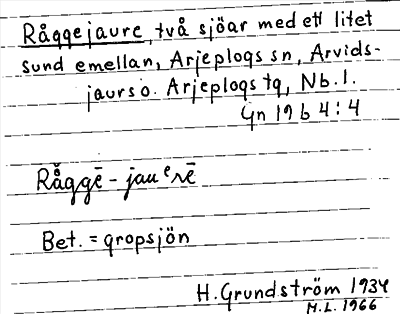 Råggejaure, två sjöar med ett litet
sund emellan, Arjeplogs sn, Arvids-
jaurs o. Arjeplogs tg, Nb. l.
Gn 19 b 4:4
Råggē - jauᵉrē
Bet. = gropsjön
H. Grundström 1934
M.L. 1966